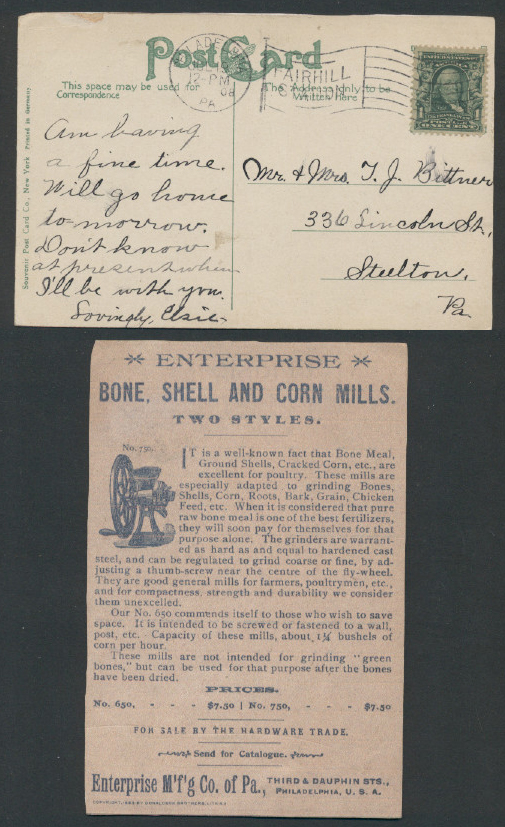 Post Card
PHILADELPHIA
12-PM
08
PA
FAIRHILL
This space may be used for
Correspondence
The Address Only to be
Written here
UNITED STATES
1
Souvenir Post Card Co., New York Printed in Germany
Am having
a fine time.
Will go home
to-morrow.
Don't know
at present when
I'll be with you.
Lovingly, Elsie-
Mr. & Mrs. T. J. Bittner
336 Lincoln St.,
Steelton,
Pa
ENTERPRISE
BONE, SHELL AND CORN MILLS.
TWO STYLES.
No. 750.
IT is a well-known fact that Bone Meal,
Ground Shells, Cracked Corn, etc., are
excellent for poultry. These mills are
especially adapted to grinding Bones,
Shells, Corn, Roots, Bark, Grain, Chicken
Feed, etc. When it is considered that pure
raw bone meal is one of the best fertilizers,
they will soon pay for themselves for that
purpose alone. The grinders are warrant-
ed as hard as and equal to hardened cast
steel, and can be regulated to grind coarse or fine, by ad-
justing a thumb-screw near the centre of the fly-wheel.
They are good general mills for farmers, poultrymen, etc.,
and for compactness, strength and durability we consider
them unexcelled.
Our No. 650 commends itself to those who wish to save
space. It is intended to be screwed or fastened to a wall,
post, etc. Capacity of these mills, about 1¼ bushels of
corn per hour.
These mills are not intended for grinding "green
bones," but can be used for that purpose after the bones
have been dried.
PRICES.
No. 650, - - - $7.50 | No. 750, - - - $7.50
FOR SALE BY THE HARDWARE TRADE.
Send for Catalogue.
Enterprise M'f'g Co. of Pa., THIRD & DAUPHIN STS.,
PHILADELPHIA, U. S. A.